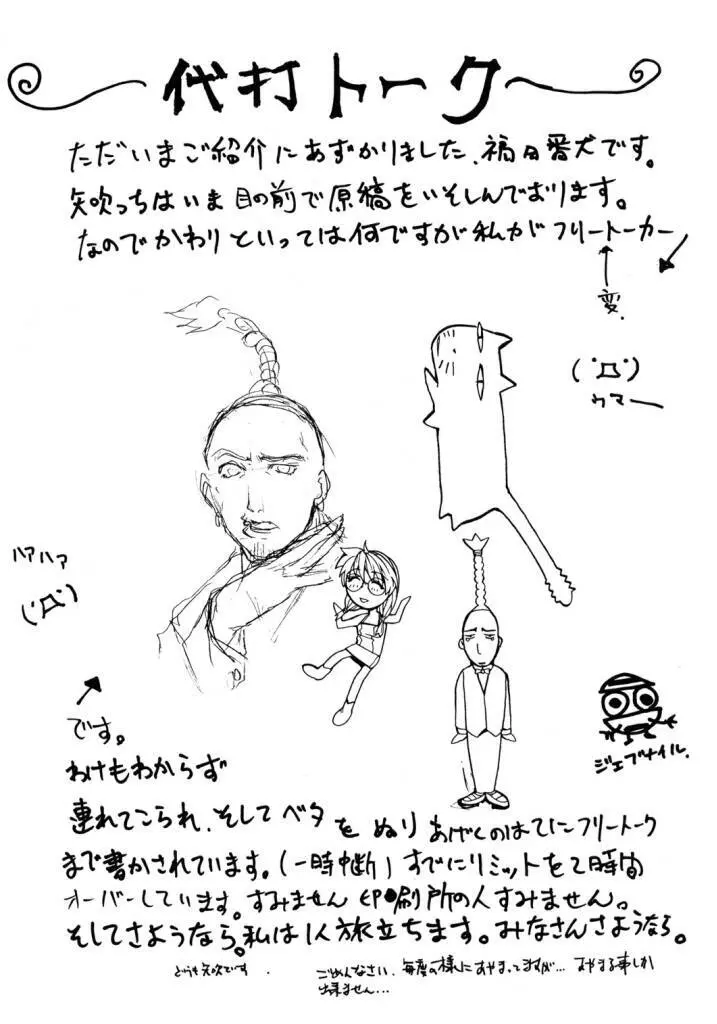 代打トーク
ただいまご紹介にあずかりました、福日番犬です。
矢吹っちはいま目の前で原稿をいそしんでおります。
なのでかわりといっては何ですが私がフリートーカー
変.
(゜Д゜)
ウマー
ハァハァ
(゜Д゜)
です。
わけもわからず
ジェブナイル.
連れてこられ、そしてベタをぬりあげくのはてにフリートーク
まで書かされています。(一時中断)すでにリミットを2時間
オーバーしています。すみません印刷所の人すみません。
そしてさようなら。私は1人旅立ちます。みなさんさようなら。
どうも矢吹です.
ごめんなさい.毎度の様にあやまってますが…あやまる事しか
出来ません...